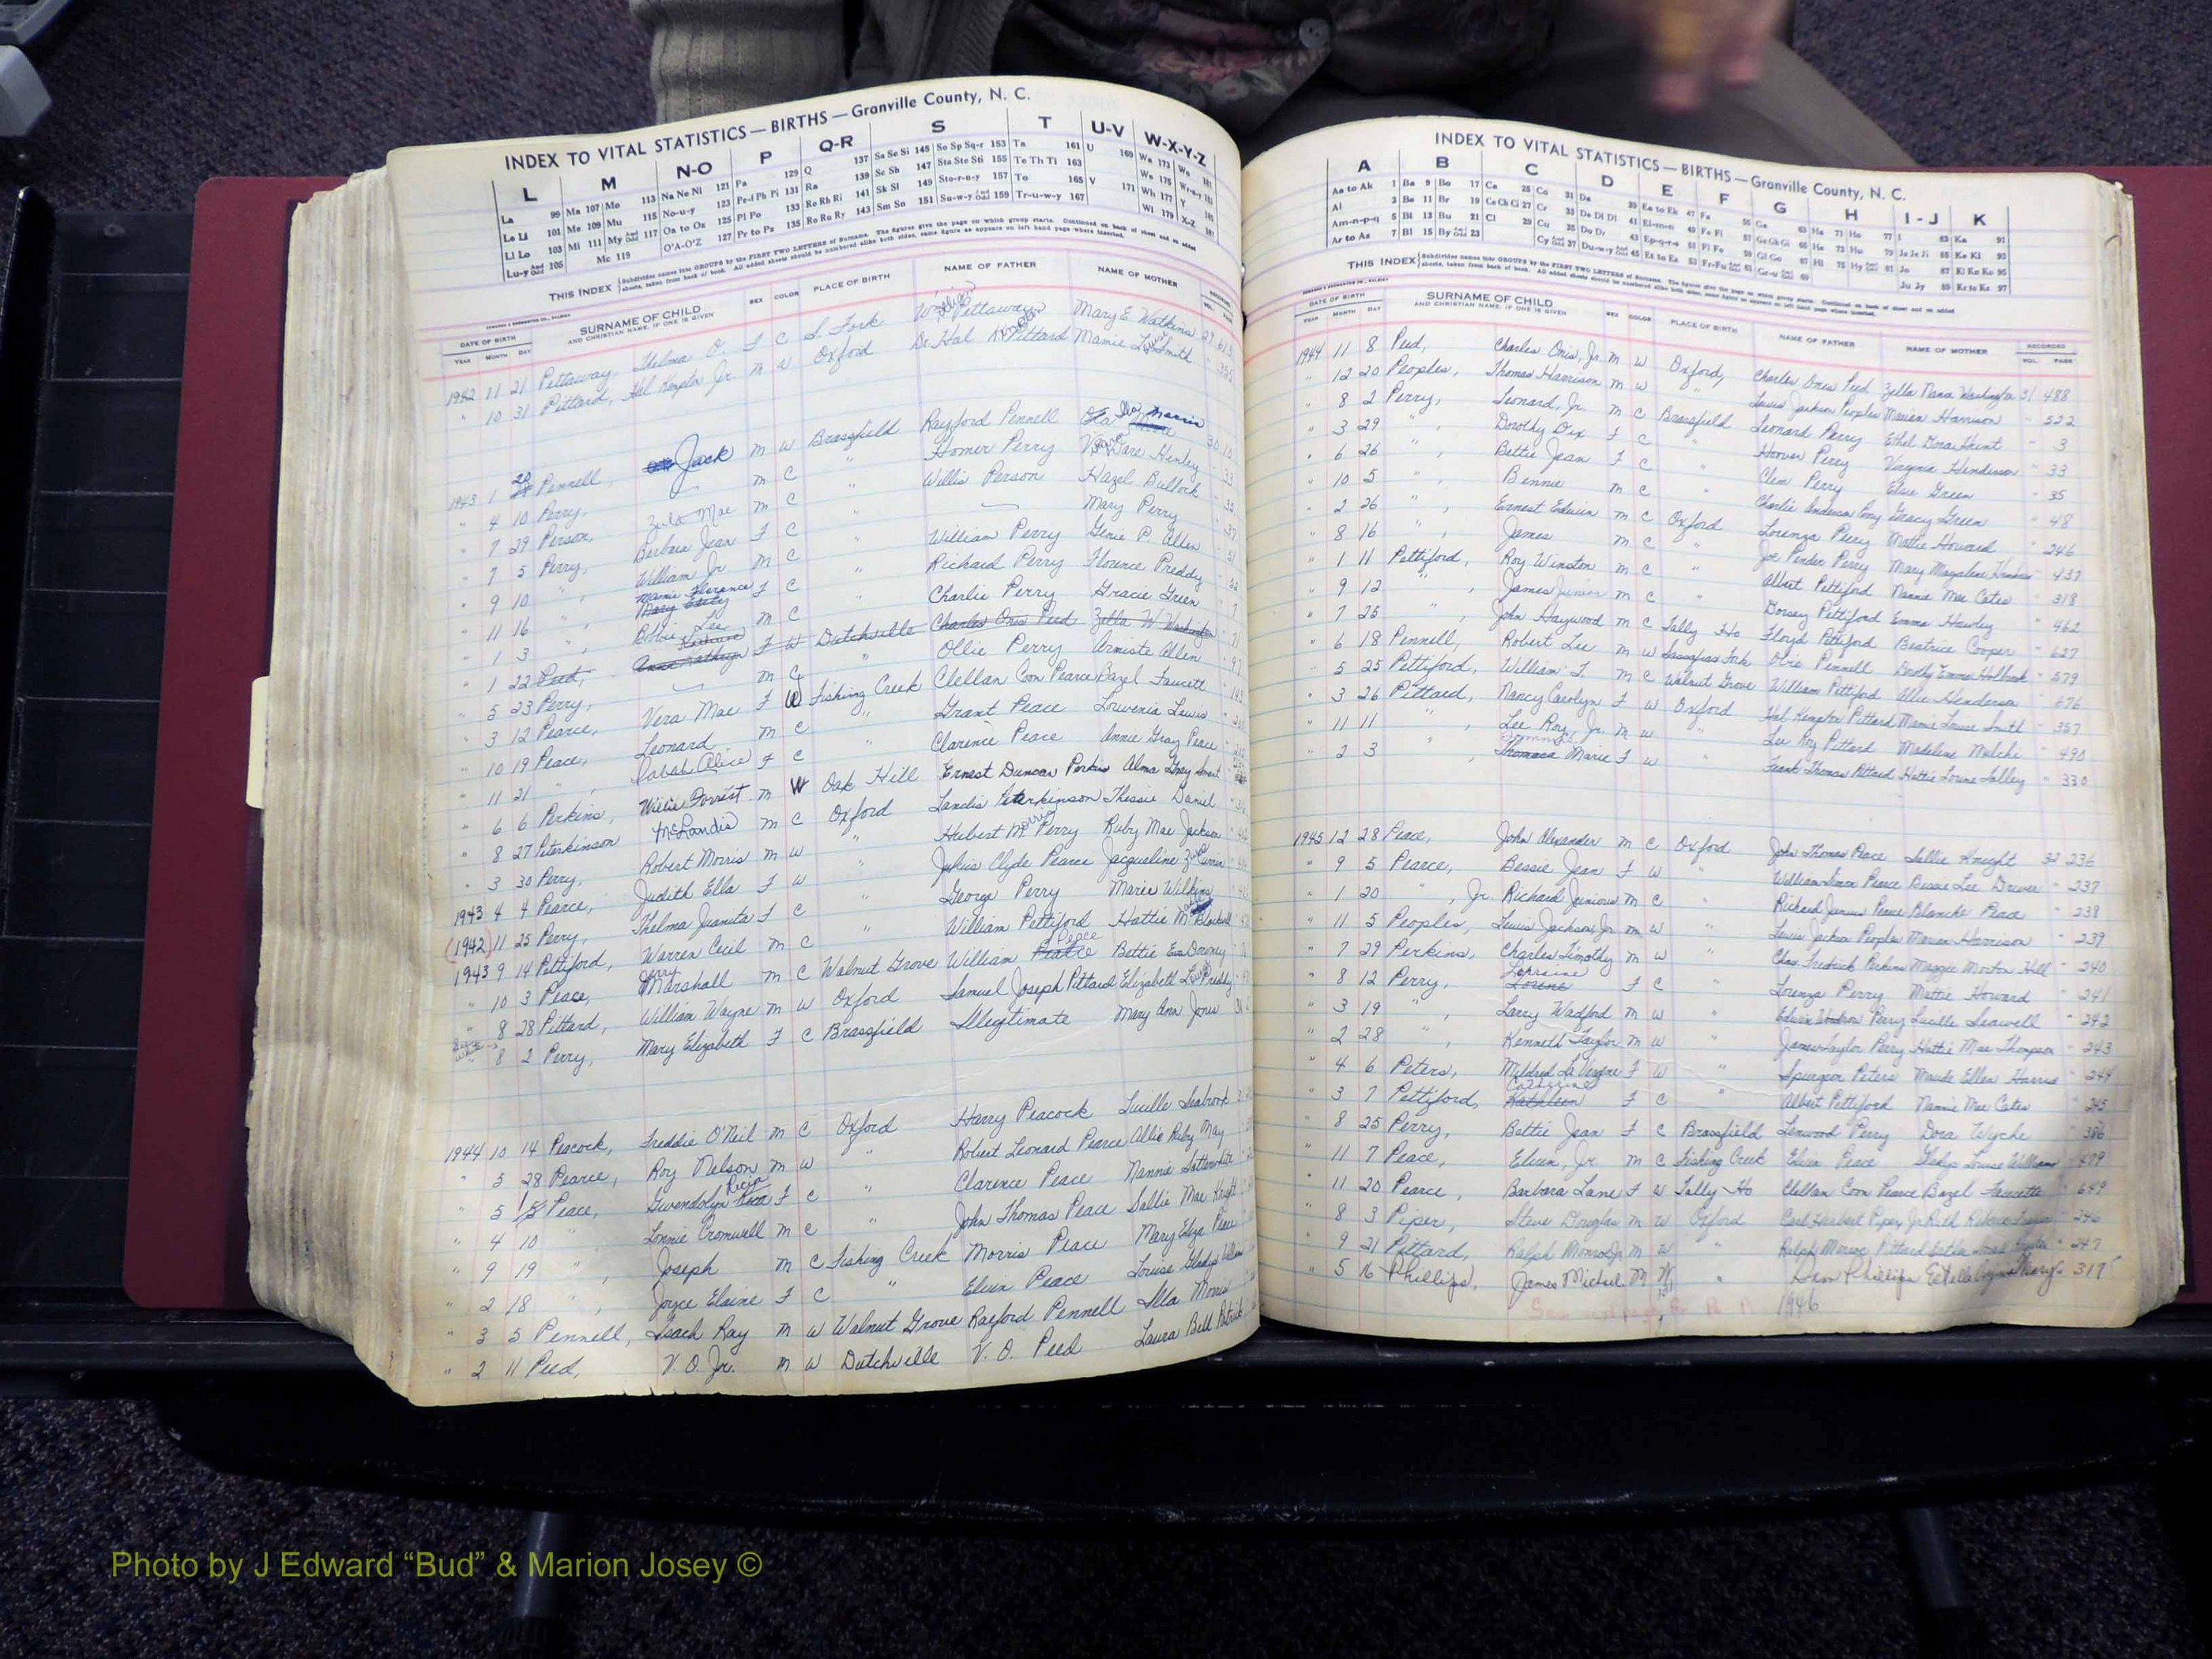 INDEX TO VITAL STATISTICS — BIRTHS — Granville County, N. C.
L M N-O P Q-R S T U-V W-X-Y-Z
La 99 Ma 107 Mo 113 Na Ne Ni 121 Pa 129 Q 137 Sa Se Si 145 So Sp Sq-r 153 Ta 161 U 169 Wa 173 Wo 181
Le Li 101 Me 109 Mu 115 No-u-y 123 Pe-f Ph Pi 131 Ra 139 Sc Sh 147 Sta Ste Sti 155 Te Th Ti 163 We 175
Ll Lo 103 Mi 111 My And Odd 117 Oa to Oz 125 Pl Po 133 Re Rh Ri 141 Sk Sl 149 Sto-r-n-y 157 To 165 V 171 Wh 177 Y
Lu-y And Odd 105 Mc 119 O'A-O'Z 127 Pr to Ps 135 Ro Ru Ry 143 Sm Sn 151 Su-w-y And Odd 159 Tr-u-w-y 167 Wi 179 X-Z
THIS INDEX Subdivides names into GROUPS by the FIRST TWO LETTERS of Surname. The figures give the page on which group starts. Continued on back of sheet and on added
sheets, taken from back of book. All added sheets should be numbered alike both sides, same figure as appears on left hand page where inserted.
DATE OF BIRTH SURNAME OF CHILD SEX COLOR PLACE OF BIRTH NAME OF FATHER NAME OF MOTHER RECORDED
YEAR MONTH DAY AND CHRISTIAN NAME, IF ONE IS GIVEN VOL.
1942 11 21 Pettaway, Thelma O. F C S. Fork Pettaway Mary E. Watkins
" 10 31 Pittard, Hal Kempton Jr. M W Oxford Dr. Hal Pittard Mamie Smith
1943 1 20 Pennell, Jack M W Brassfield Rayford Pennell Morris
" 4 10 Perry, M C " Homer Perry Henley
" 7 29 Person, Zula Mae M C " Willis Person Hazel Bullock
" 7 5 Perry, Barbara Jean F C " Mary Perry
" 9 10 " , William Jr. M C " William Perry Genie P. Allen
" 11 16 " , Mamie Florence F C " Richard Perry Florence Preddy
" 1 3 " , Bobbie Lee M C Charlie Perry Gracie Green
" 1 22 Peed, Anna Kathryn F W Dutchville Charles Onis Peed Zella W Washington
" 5 23 Perry, M C " Ollie Perry Armista Allen
" 3 12 Pearce, Vera Mae F W Fishing Creek Clellan Coon Pearce Bazel Faucett
" 10 19 Peace, Leonard M C " Grant Peace Louvenia Lewis
" 11 21 " , Sarah Alice F C " Clarence Peace Annie Gray Peace
" 6 6 Perkins, Willie Forrest M W Oak Hill Ernest Duncan Perkins Alma Grey
" 8 27 Peterkinson McLandis M C Oxford Landis Peterkinson Thessie Daniel
" 3 30 Perry, Robert Morris M W " Hubert Morris Perry Ruby Mae Jackson
1943 4 4 Pearce, Judith Ella F W " Julius Clyde Pearce Jacqueline Currin
(1942) 11 25 Perry, Thelma Juanita F C " George Perry Maria Wilkins
1943 9 14 Pettiford, Warren Cecil M C " William Pettiford Hattie M. Blackwell
" 10 3 Peace, Jerry Marshall M C Walnut Grove William Peace Bettie Eva Downey
" 8 28 Pittard, William Wayne M W Oxford Samuel Joseph Pittard Elizabeth Preddy
" 8 2 Perry, Mary Elizabeth F C Brassfield Illegitimate Mary Ann Jones
1944 10 14 Peacock, Freddie O'Neil M C Oxford Harry Peacock Lucille Seabrook
" 5 28 Pearce, Roy Nelson M W " Robert Leonard Pearce Allie Ruby May
" 5 15 Peace, Gwendolyn F C " Clarence Peace Nannie Satterwhite
" 4 10 " Lonnie Cromwell M C " John Thomas Peace Sallie Mae Knight
" 9 19 " , Joseph M C Fishing Creek Morris Peace Mary Eliza Peace
" 2 18 " , Joyce Elaine F C " Elvin Peace Louise Gladys Williams
" 3 5 Pennell, Isach Ray M W Walnut Grove Rayford Pennell Illa Morris
" 2 11 Peed, V. O. Jr. M W Dutchville V. O. Peed Laura Bell
INDEX TO VITAL STATISTICS — BIRTHS — Granville County, N. C.
A B C D E F G H I-J K
Aa to Ak 1 Ba 9 Bo 17 Ca 25 Co 31 Da 39 Ea to Ek 47 Fa 55 Ga 63 Ha 71 Ho 77 I 83 Ka 91
Al 3 Be 11 Br 19 Ce Ch Ci 27 Cr 33 De Di Dl 41 El-m-n 49 Fe Fi 57 Ge Gh Gi 65 He 73 Hu 79 Ja Je Ji 85 Ke Kl 93
Am-n-p-q 5 Bi 13 Bu 21 Cl 29 Cu 35 Do Dr 43 Ep-q-r-s 51 Fl Fo 59 Gl Go 67 Hi 75 Hy And Odd 81 Jo 87 Kl Kn Ko 95
Ar to Az 7 Bl 15 By And Odd 23 Cy And Odd 37 Du-w-y And Odd 45 Et to Ez 53 Fr-Fu And Odd 61 Gr-u And Odd 69 Ju Jy 89 Kr to Kz 97
THIS INDEX Subdivides names into GROUPS by the FIRST TWO LETTERS of Surname. The figures give the page on which group starts. Continued on back of sheet and on added
sheets, taken from back of book. All added sheets should be numbered alike both sides, same figure as appears on left hand page where inserted.
DATE OF BIRTH SURNAME OF CHILD SEX COLOR PLACE OF BIRTH NAME OF FATHER NAME OF MOTHER RECORDED
YEAR MONTH DAY AND CHRISTIAN NAME, IF ONE IS GIVEN VOL. PAGE
1944 11 8 Peed, Charles Onis, Jr. M W Oxford, Charles Onis Peed Zella Nana Washington 31 488
" 12 20 Peoples, Thomas Harrison M W " Lewis Jackson Peoples Marion Harrison " 522
" 8 2 Perry, Leonard, Jr. M C Brassfield Leonard Perry Ethel Dora " 3
" 3 29 " , Dorothy Dix F C " Hoover Perry Virginia Henderson " 33
" 6 26 " , Bettie Jean F C " Clem Perry Elsie Green " 35
" 10 5 " , Bennie M C " Charlie Anderson Perry Gracy Green " 48
" 2 26 " , Ernest Edwin M C Oxford Lorenza Perry Mattie Howard " 246
" 8 16 " , James M C " Joe Pender Perry Mary Magalene " 437
" 1 11 Pettiford, Roy Winston M C " Albert Pettiford Nannie Mae Cates " 318
" 9 12 " , James Junior M C " Dorsey Pettiford Emma Hawley " 462
" 7 25 " , John Haywood M C Tally Ho Floyd Pettiford Beatrice Cooper " 627
" 6 18 Pennell, Robert Lee M W Sassafras Fork Obie Pennell Dorothy Emma Holbrook " 579
" 5 25 Pettiford, William T. M C Walnut Grove William Pettiford Allie Henderson " 676
" 3 26 Pittard, Nancy Carolyn F W Oxford Hal Kempton Pittard Mamie Louise Smith " 357
" 11 11 " , Lee Roy, Jr. M W " Lee Roy Pittard Madeline " 490
" 2 3 " , Thomasa Marie F W " Frank Thomas Pittard Hattie Louise Talley " 330
1945 12 28 Peace, John Alexander M C Oxford John Thomas Peace Sallie Knight 32 236
" 9 5 Pearce, Bessie Jean F W " William Simon Pearce Bessie Lee Driver " 237
" 1 20 " , Jr. Richard Junious M C " Richard Junius Pearce Blanche Peace " 238
" 11 5 Peoples, Lewis Jackson, Jr. M W " Lewis Jackson Peoples Marion Harrison " 239
" 7 29 Perkins, Charles Timothy M W " Chas. Fredrick Perkins Maggie Morton Hall " 240
" 8 12 Perry, Lorraine Lorene F C " Lorenza Perry Mattie Howard " 241
" 3 19 " , Larry Wadford M W " Edwin Perry Lucille Seawell " 242
" 2 28 " , Kenneth Taylor M W " James Taylor Perry Hattie Mae Thompson " 243
" 4 6 Peters, Mildred La Vergne F W " Spurgeon Peters Maude Ellen Harris " 244
" 3 7 Pettiford, Catherine Kathleen F C " Albert Pettiford Nannie Mae Cates " 245
" 8 25 Perry, Bettie Jean F C Brassfield Lenwood Perry Dora Wyche " 386
" 11 7 Peace, Elvin, Jr. M C Fishing Creek Elvin Peace Gladys Louise Williams " 479
" 11 20 Pearce, Barbara Lane F W Tally-Ho Clellan Coon Pearce Bazel Faucette " 649
" 8 3 Piper, Steve Douglas M W Oxford Carl Herbert Piper, Jr. " 246
" 9 21 Pittard, Ralph Monroe Jr M W " Ralph Monroe Pittard " 247
" 5 16 Phillips, James Michael M W " Dan Phillips Estelle " 317
1946
Photo by J Edward “Bud” & Marion Josey ©